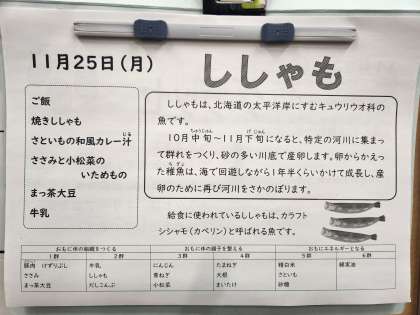 11月25日(月)
ししゃも
ご飯
焼きししゃも
さといもの和風カレー汁
じる
ささみと小松菜の
いためもの
まっ茶大豆
牛乳
ししゃもは、北海道の太平洋岸にすむキュウリウオ科の
魚です。
ちゅうじゅん げじゅん
10月中旬~11月下旬になると、特定の河川に集まっ
て群れをつくり、砂の多い川底で産卵します。卵からかえっ
ちぎょ
た稚魚は、海で回遊しながら1年半くらいかけて成長し、産
卵のために再び河川をさかのぼります。
給食に使われているししゃもは、カラフト
シシャモ(カペリン)と呼ばれる魚です。
おもに体の組織をつくる おもに体の調子を整える おもにエネルギーとなる
1群 2群 3群 4群 5群 6群
豚肉 けずりぶし 牛乳 にんじん たまねぎ 精白米 綿実油
ささみ ししゃも 青ねぎ 大根 さといも
まっ茶大豆 だしこんぶ 小松菜 まいたけ 砂糖